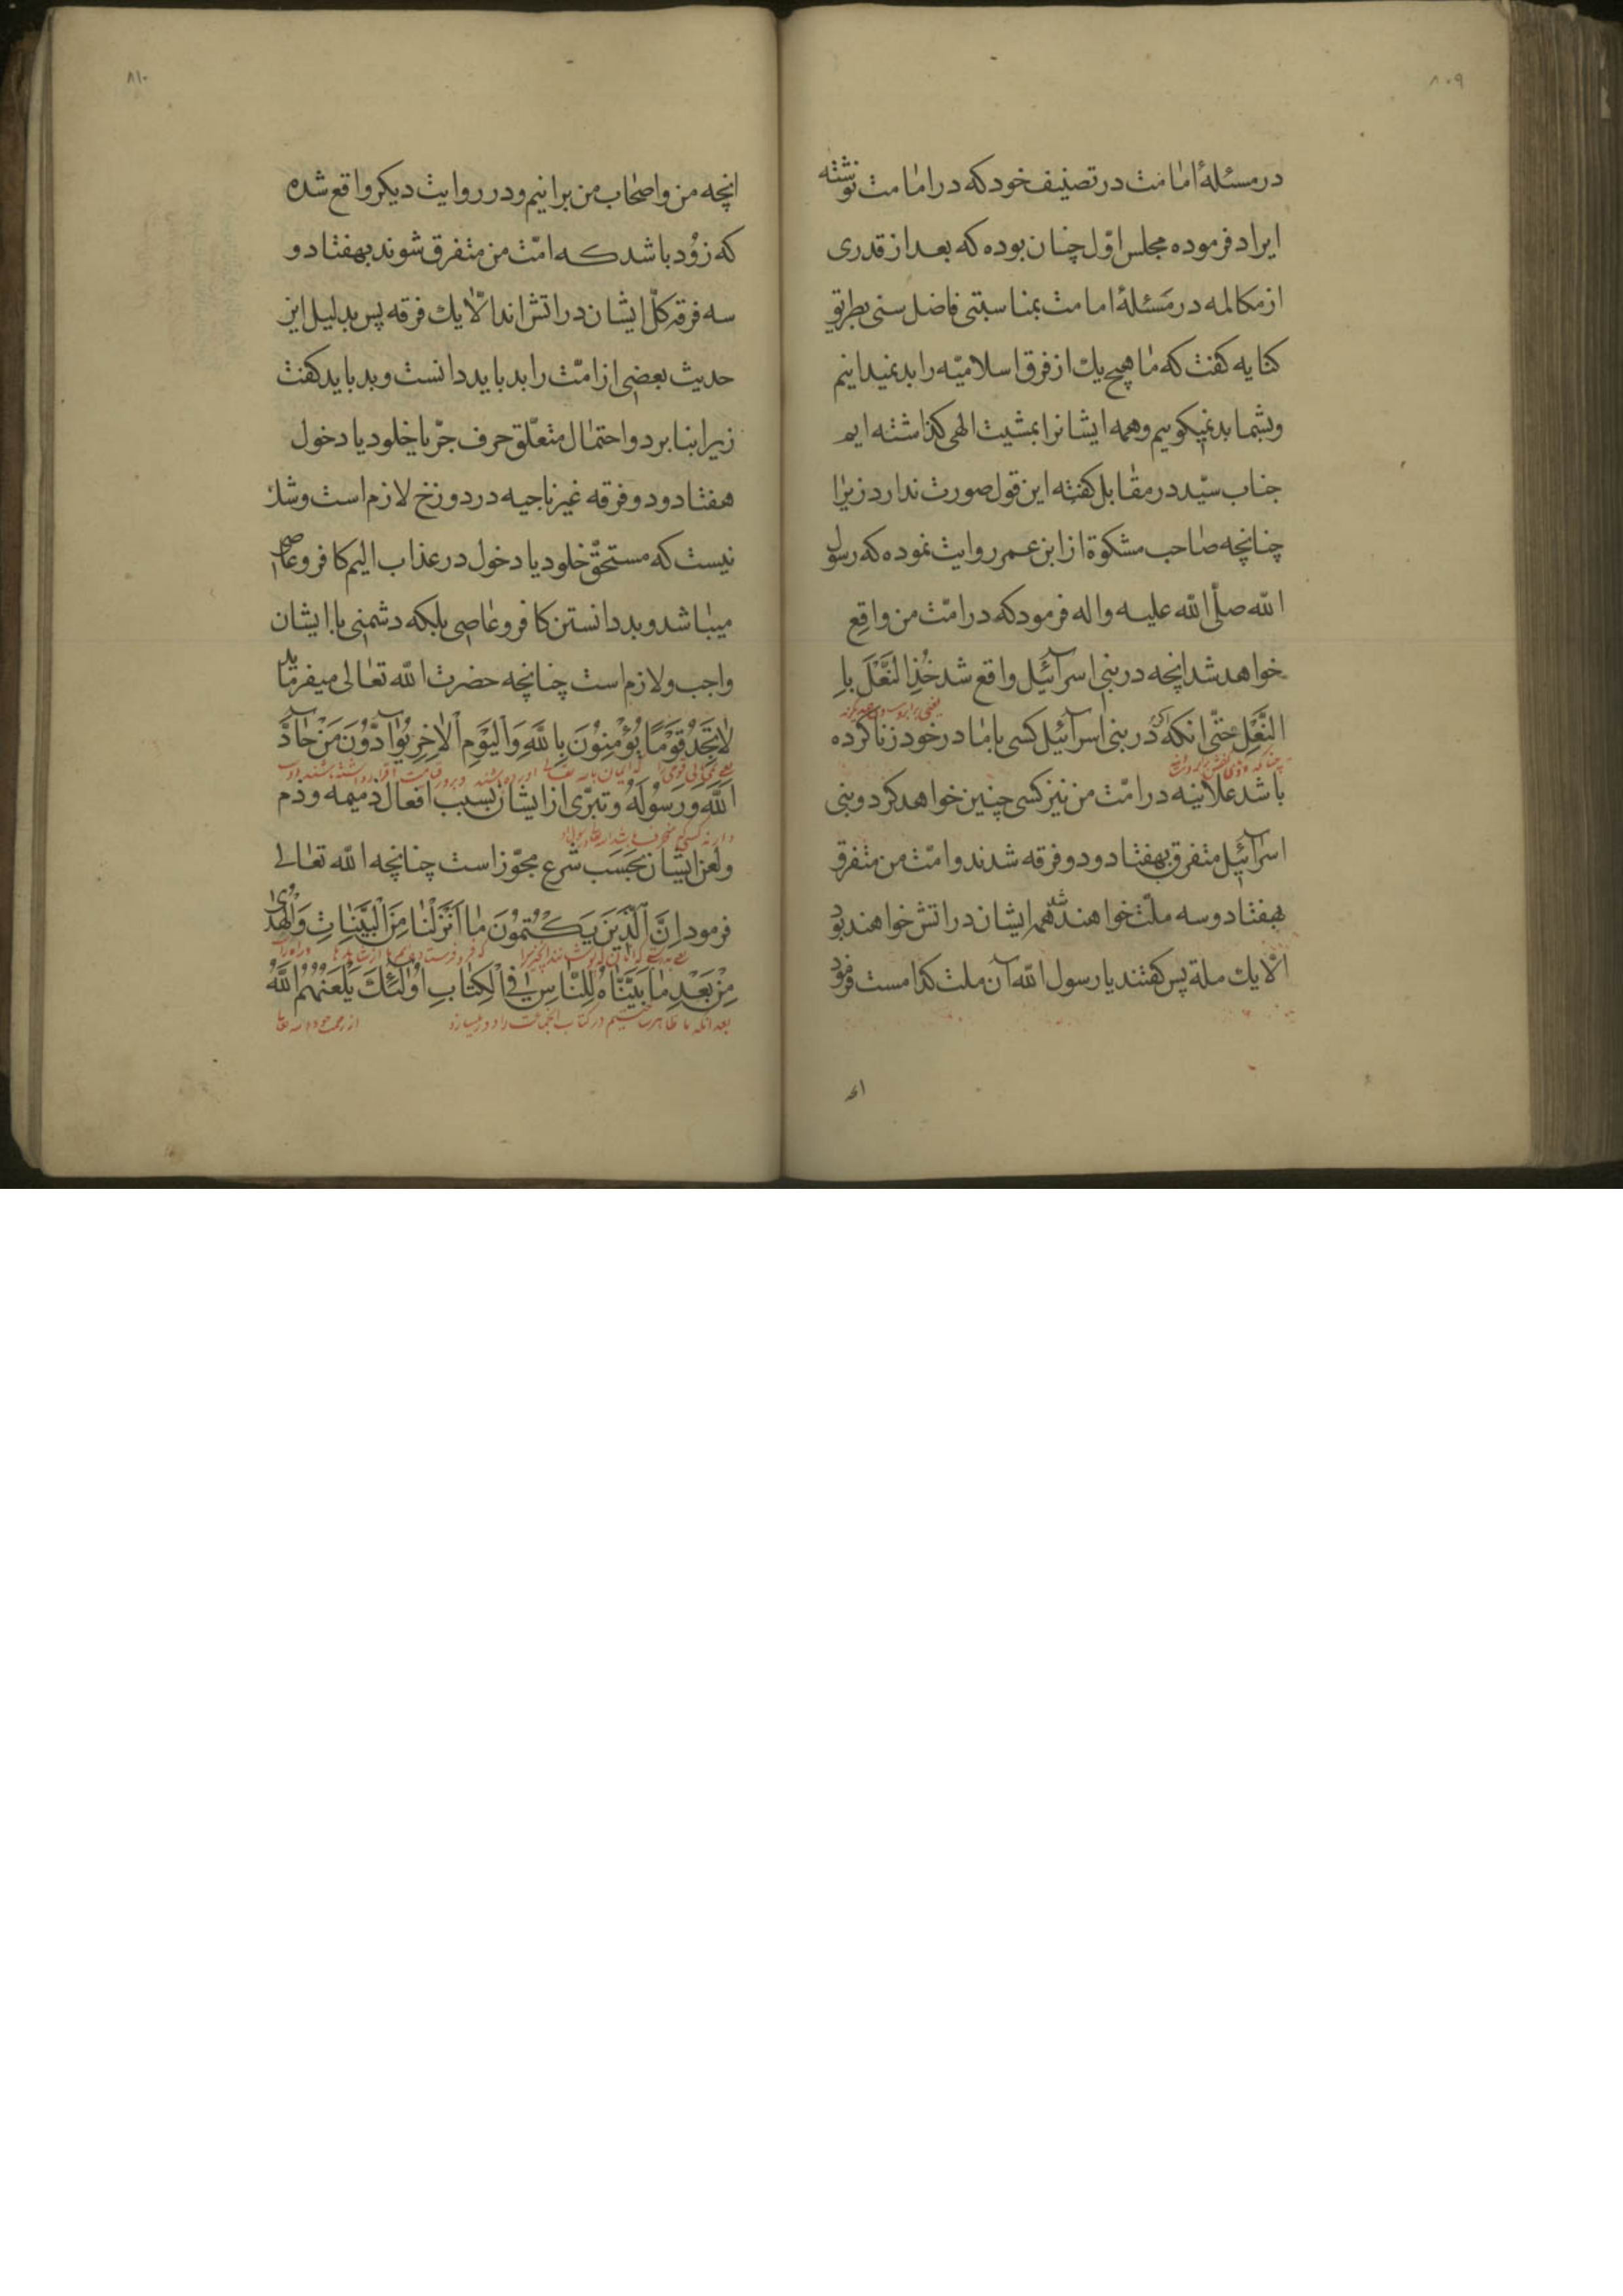 ۸۰۹
در مسئلهٔ امامت در تصنیف خود که در امامت نوشته
ایراد فرموده مجلس اوّل چنان بوده که بعد از قدری
از مکالمه در مَسئلهٔ امامت بمناسبتی فاضل سنی بطریق
کنایه کفت که ما هیچ یك از فرق اسلامیّه را بد نمیدانیم
وبشما بد نمیکوییم وهمه ایشانرا بمشیت الهی کذاشته ایم
جناب سیّد در مقابل کفته این قول صورت ندارد زیرا
چنانچه صاحب مشکوة از ابن عمر روایت نموده که رسول
الله صلّی الله علیه واله فرمود که در امّت من واقِع
خواهد شد انچه در بنی اسرآئیل واقع شد خُذِ النَّعْلَ بِا
النَّعْلِ حتّی انکه در بنی اسرآئیل کسی با مادر خود زنا کرده
باشد علانیه در امّت من نیز کسی چنین خواهد کرد وبنی
اسرآئیل متفرق بهفتاد ودو فرقه شدند وامّت من متفرق
بهفتاد وسه ملّت خواهند شد همه ایشان در اتش خواهند بود
الّا یك ملة پس کفتند یا رسول الله آن ملت کدامست فرمود
۸۱۰
انچه من واصحاب من برانیم ودر روایت دیکر واقع شده
که زوُد باشد که امّت من متفرق شوند بهفتاد و
سه فرقه کلّ ایشان در اتش اند الّا یك فرقه پس بدلیل این
حدیث بعضی از امّت را بد باید دانست وبد باید کفت
زیرا بنا بر دو احتمال متعلّق حرف جرّ یا خلود یا دخول
هفتاد ودو فرقه غیر ناجیه در دوزخ لازم است وشك
نیست که مستحقّ خلود یا دخول در عذاب الیم کافر وعاصی
میباشد وبد دانستن کافر وعاصی بلکه دشمنی با ایشان
واجب ولازم است چنانچه حضرت الله تعالی میفرماید
لاٰ تَجِدُ قَوْمًا یُؤْمِنوُنَ بِاللّٰهِ وَالْیَوْمِ الْاٰخِرِ یُوٰآدّوُنَ مَنْ حٰآدَّ
اللّٰهَ ورَسوُلَهُ وتبرّی از ایشان بسبب افعال ذمیمه وذم
ولعن ایشان بحَسَب شرع مجوّز است چنانچه الله تعالی
فرمود اِنَّ الَّذینَ یَکْتُموُنَ مٰا اَنْزَلْنٰا مِنَ الْبَیِّنٰاتِ وَالْهُدیٰ
مِنْ بَعْدِ مٰا بَیَّنّٰاهُ لِلنّٰاسِ فِی الْکِتٰابِ اوُلٰئِكَ یَلْعَنُهُمُ اللّٰهُ